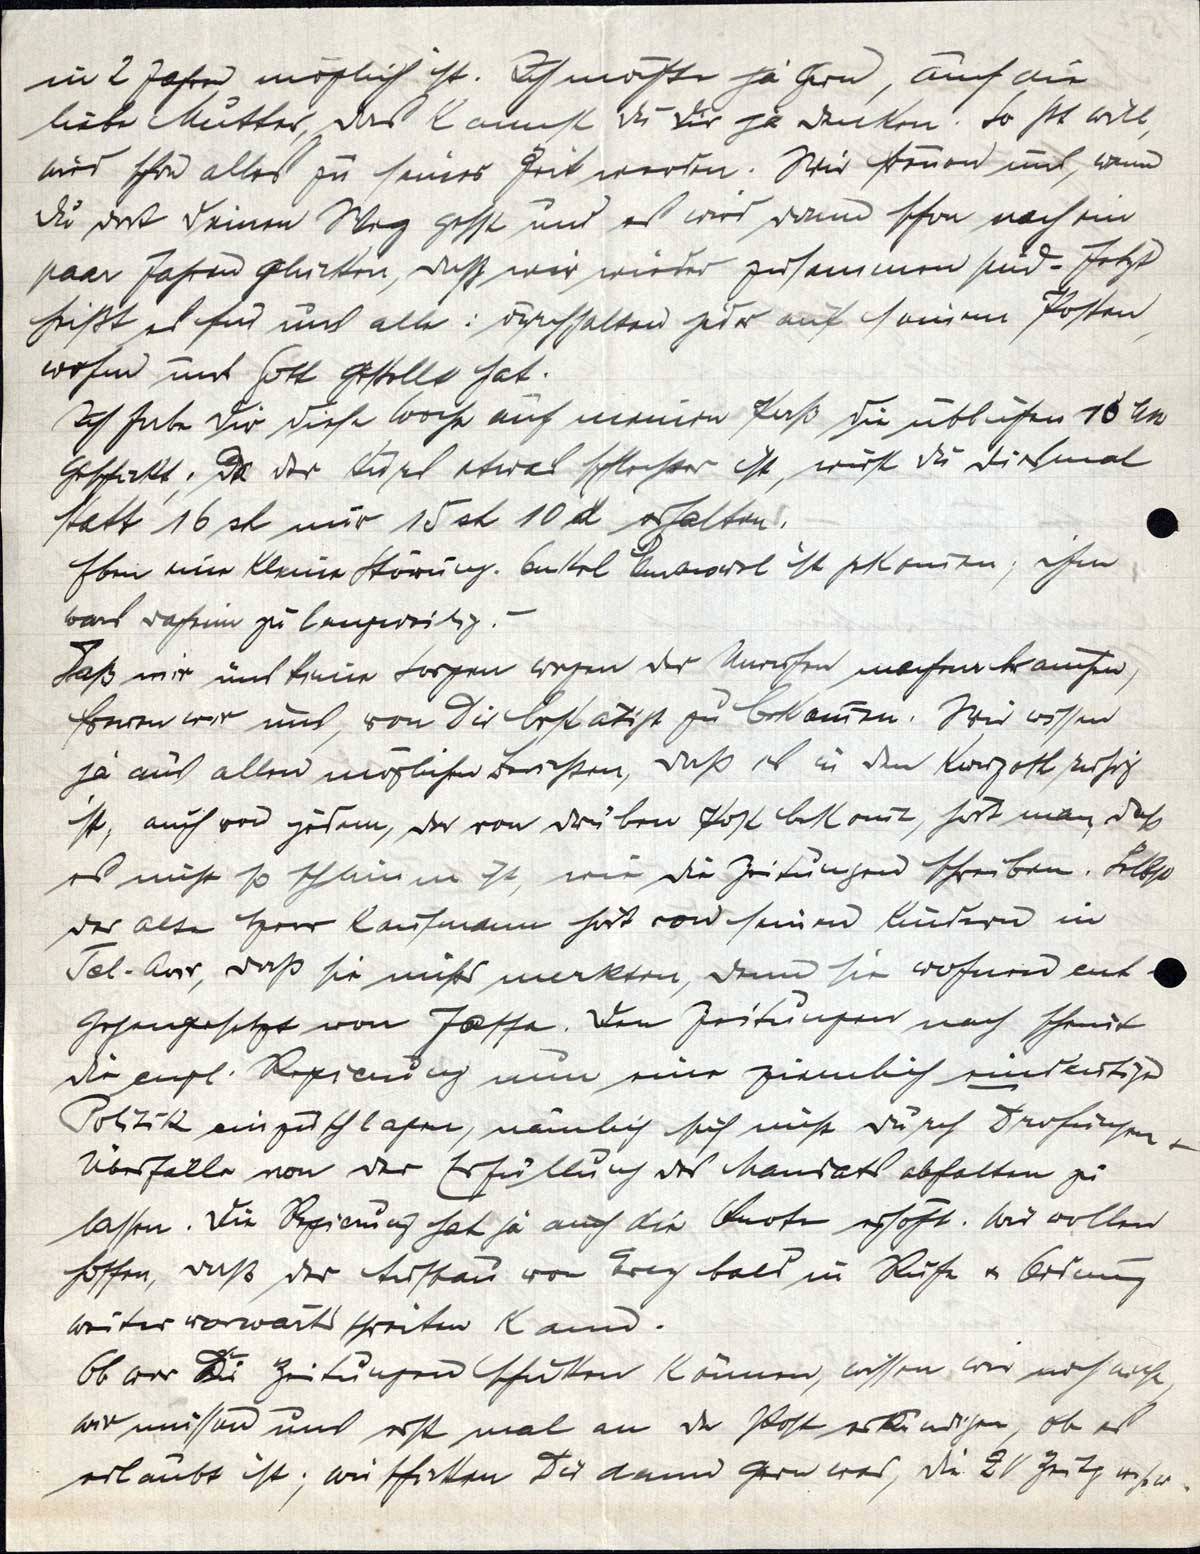 in 2 Jahren möglich ist. Ich möchte ja gern, auch die
liebe Mutter, das kannst du dir ja denken. So Gott will,
wird schon alles zu seiner Zeit werden. Wir freuen uns, wenn
du dort deinen Weg gehst und es wird dann schon nach ein
paar Jahren glücken, daß wir wieder zusammen sind. Jetzt
heißt es für uns alle: durchhalten jeder auf seinem Posten,
wohin uns Gott gestellt hat.
Ich habe Dir diese Woche auf meinen Paß die üblichen 10 Mk
geschickt. Da der Kurs etwas schlechter ist, wirst du diesmal
statt 16 sh nur 15 sh 10 d erhalten.
Eben eine kleine Störung. Onkel ist gekommen, ihm
wars daheim zu langweilig. –
Daß wir uns keine Sorgen wegen der Unruhen machen brauchen,
freuen wir uns, von Dir bestätigt zu bekommen. Wir wissen
ja aus allen möglichen Berichten, daß es in den ruhig
ist, auch von jedem, der von drüben Post bekommt, hört man, daß
es nicht so schlimm ist, wie die Zeitungen schreiben. Selbst
der alte Herr Kaufmann hört von seinen Kindern in
Tel-Aviv, daß sie nichts merkten, denn sie wohnen ent-
gegengesetzt von Jaffa. Den Zeitungen nach scheint
die engl. Regierung nun eine ziemlich eindeutige
Politik einzuschlagen, nämlich sich nicht durch Drohungen +
Überfälle von der Erfüllung des Mandats abhalten zu
lassen. Die Regierung hat ja auch die Quote erhöht. Wir wollen
hoffen, daß der Aufbau von Erez bald in Ruhe & Ordnung
weiter vorwärts schreiten kann.
Ob wir Dir Zeitungen schicken können, wissen wir noch nicht,
wir müssen uns erst mal an der Post erkundigen, ob es
erlaubt ist; wir schicken Dir dann gern was, die CV Zeitg usw.